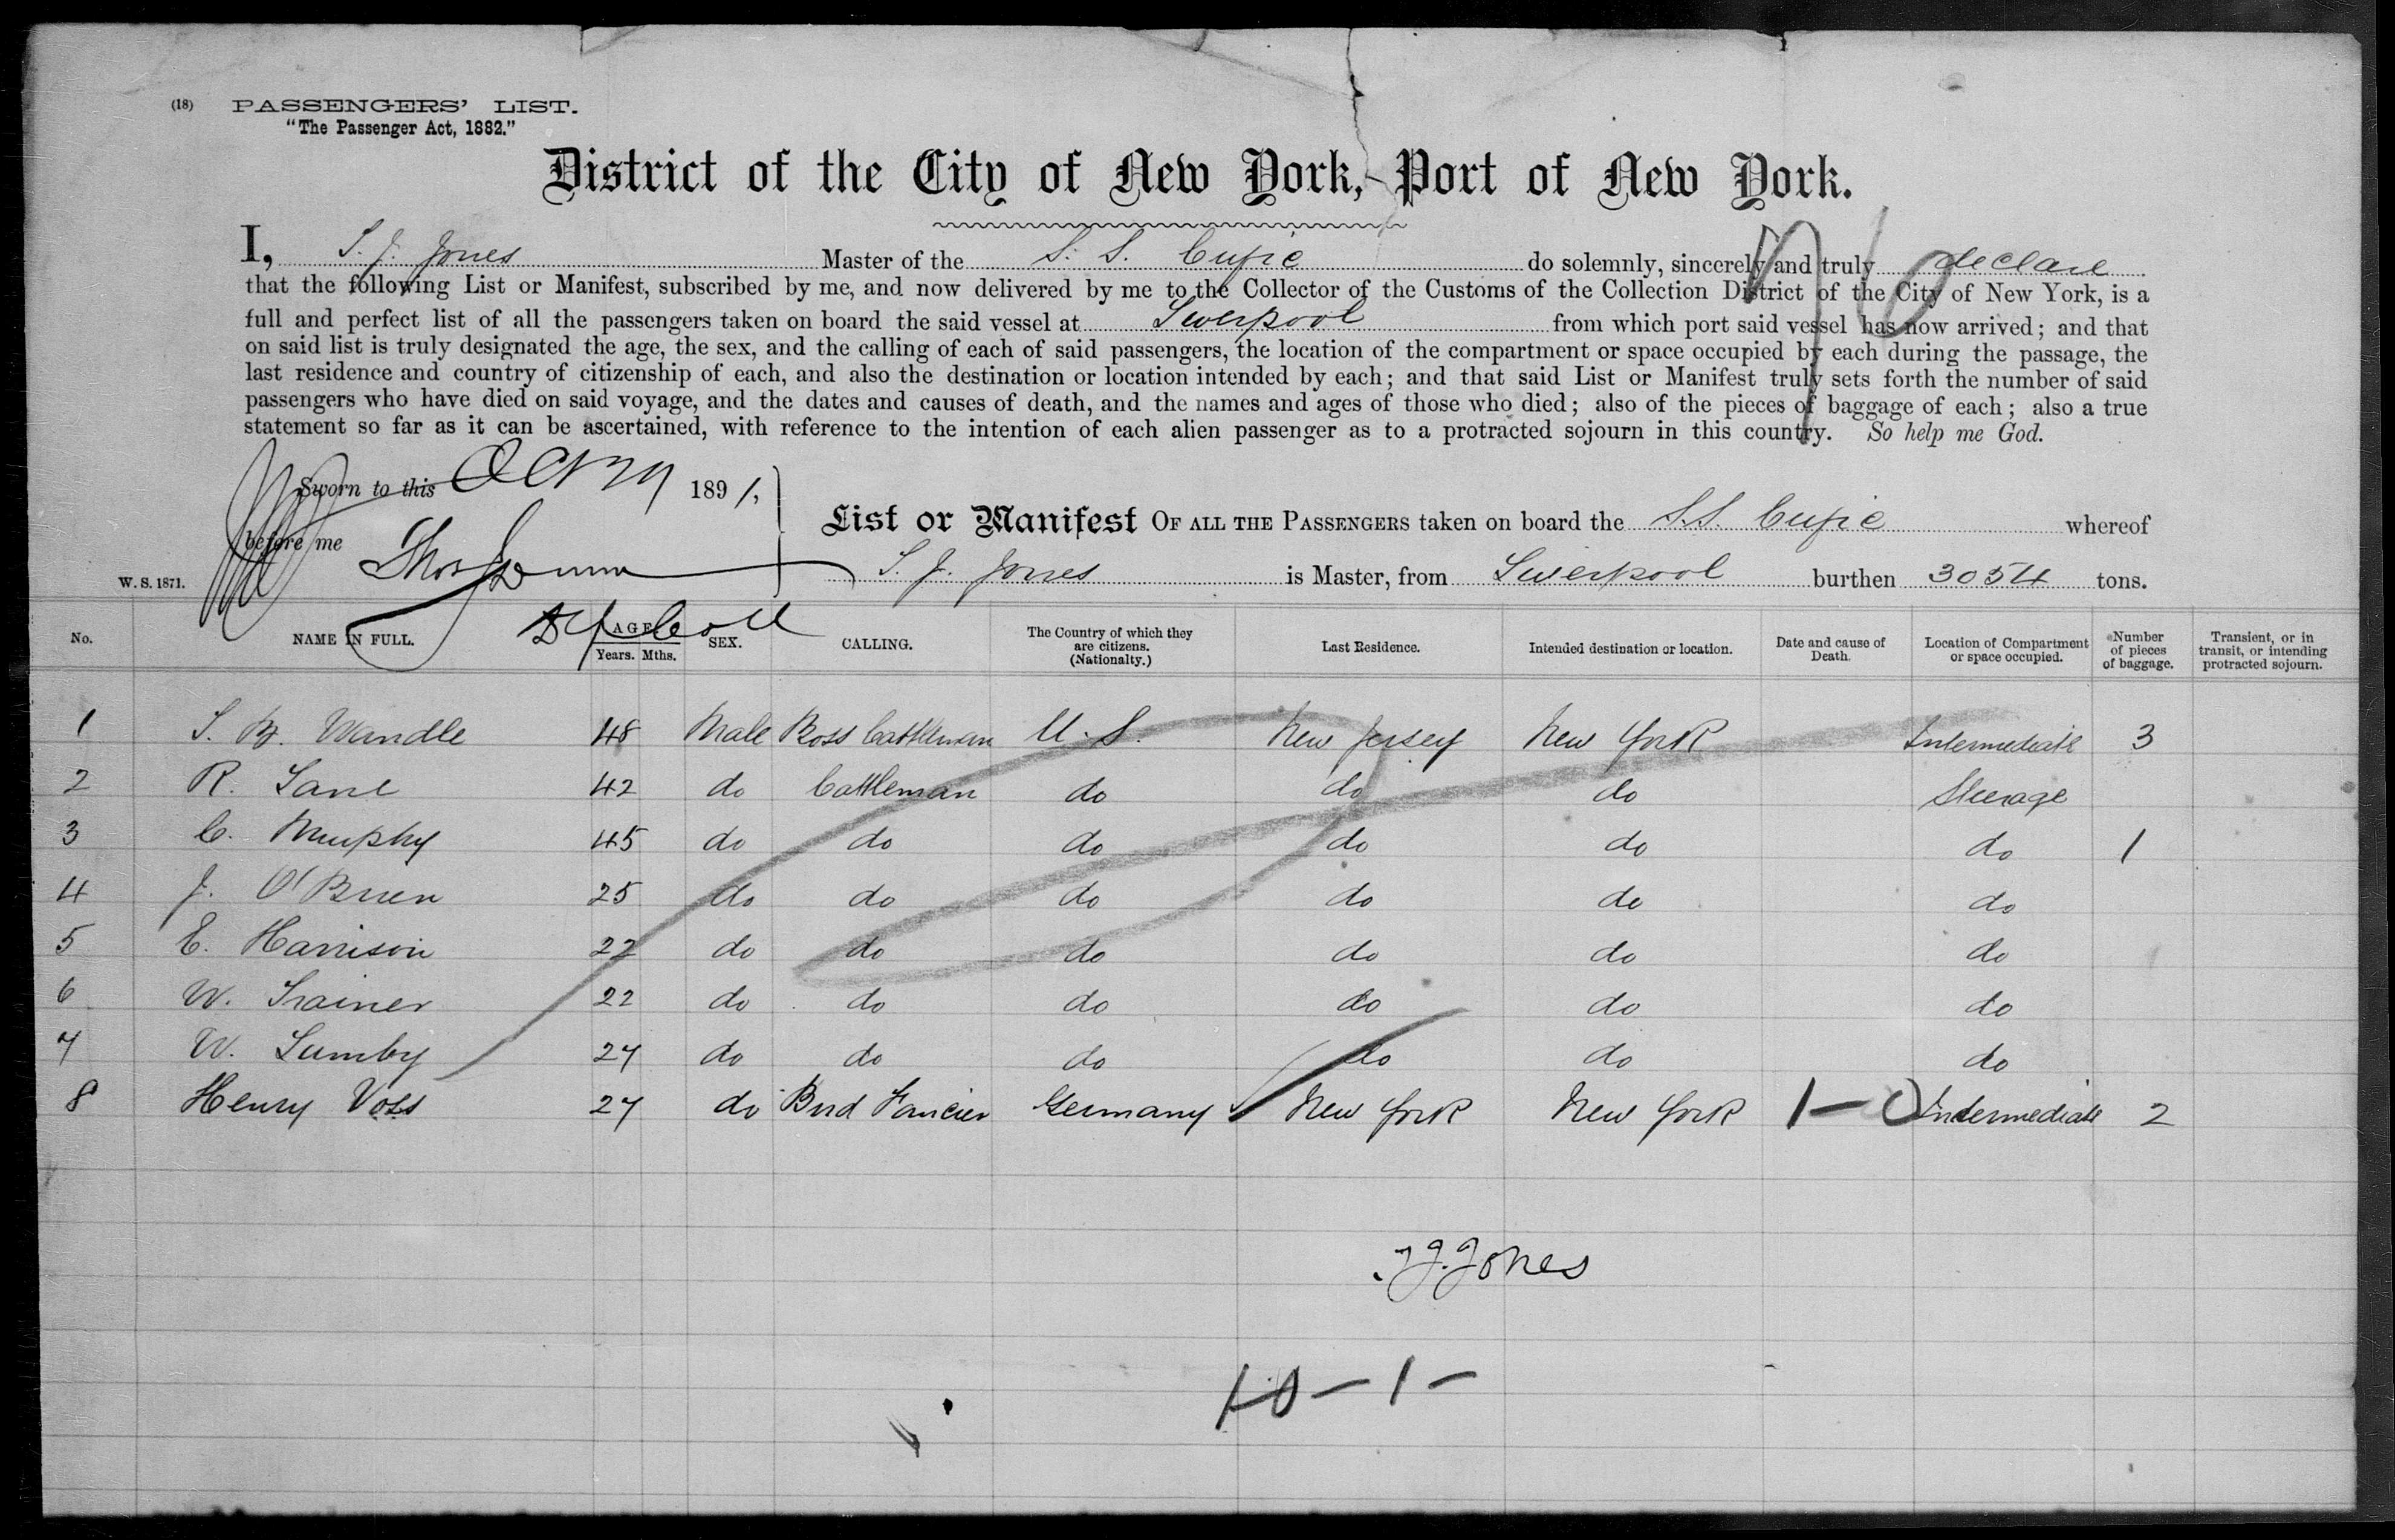 (18) PASSENGERS' LIST.
"The Passenger Act, 1882."
District of the City of New York, Port of New York.
I, S. J. Jones Master of the S. S. Cufic do solemnly, sincerely and truly declare
that the following List or Manifest, subscribed by me, and now delivered by me to the Collector of the Customs of the Collection District of the City of New York, is a
full and perfect list of all the passengers taken on board the said vessel at Liverpool from which port said vessel has now arrived; and that
on said list is truly designated the age, the sex, and the calling of each of said passengers, the location of the compartment or space occupied by each during the passage, the
last residence and country of citizenship of each, and also the destination or location intended by each; and that said List or Manifest truly sets forth the number of said
passengers who have died on said voyage, and the dates and causes of death, and the names and ages of those who died; also of the pieces of baggage of each; also a true
statement so far as it can be ascertained, with reference to the intention of each alien passenger as to a protracted sojourn in this country. So help me God.
Sworn to this Oct 1891,
before me Thos Dunn
List or Manifest OF ALL THE PASSENGERS taken on board the S.S. Cufic whereof
S. J. Jones is Master, from Liverpool burthen 3054 tons.
W. S. 1871.
Dep Coll
No. NAME IN FULL. AGE Years. Mths. SEX. CALLING. The Country of which they are citizens. (Nationalty.) Last Residence. Intended destination or location. Date and cause of Death. Location of Compartment or space occupied. Number of pieces of baggage. Transient, or in transit, or intending protracted sojourn.
1 S. B. Wandle 48 Male Boss Cattleman U. S. New Jersey New York Intermediate 3
2 R. Lane 42 do Cattleman do do do Steerage
3 C. Murphy 45 do do do do do do 1
4 J. O'Brien 25 do do do do do do
5 E. Harrison 22 do do do do do do
6 W. Trainer 22 do do do do do do
7 W. Lumby 27 do do do do do do
8 Henry Voss 27 do Bird Fancier Germany New York New York 1-0 Intermediate 2
J. Jones
10-1-